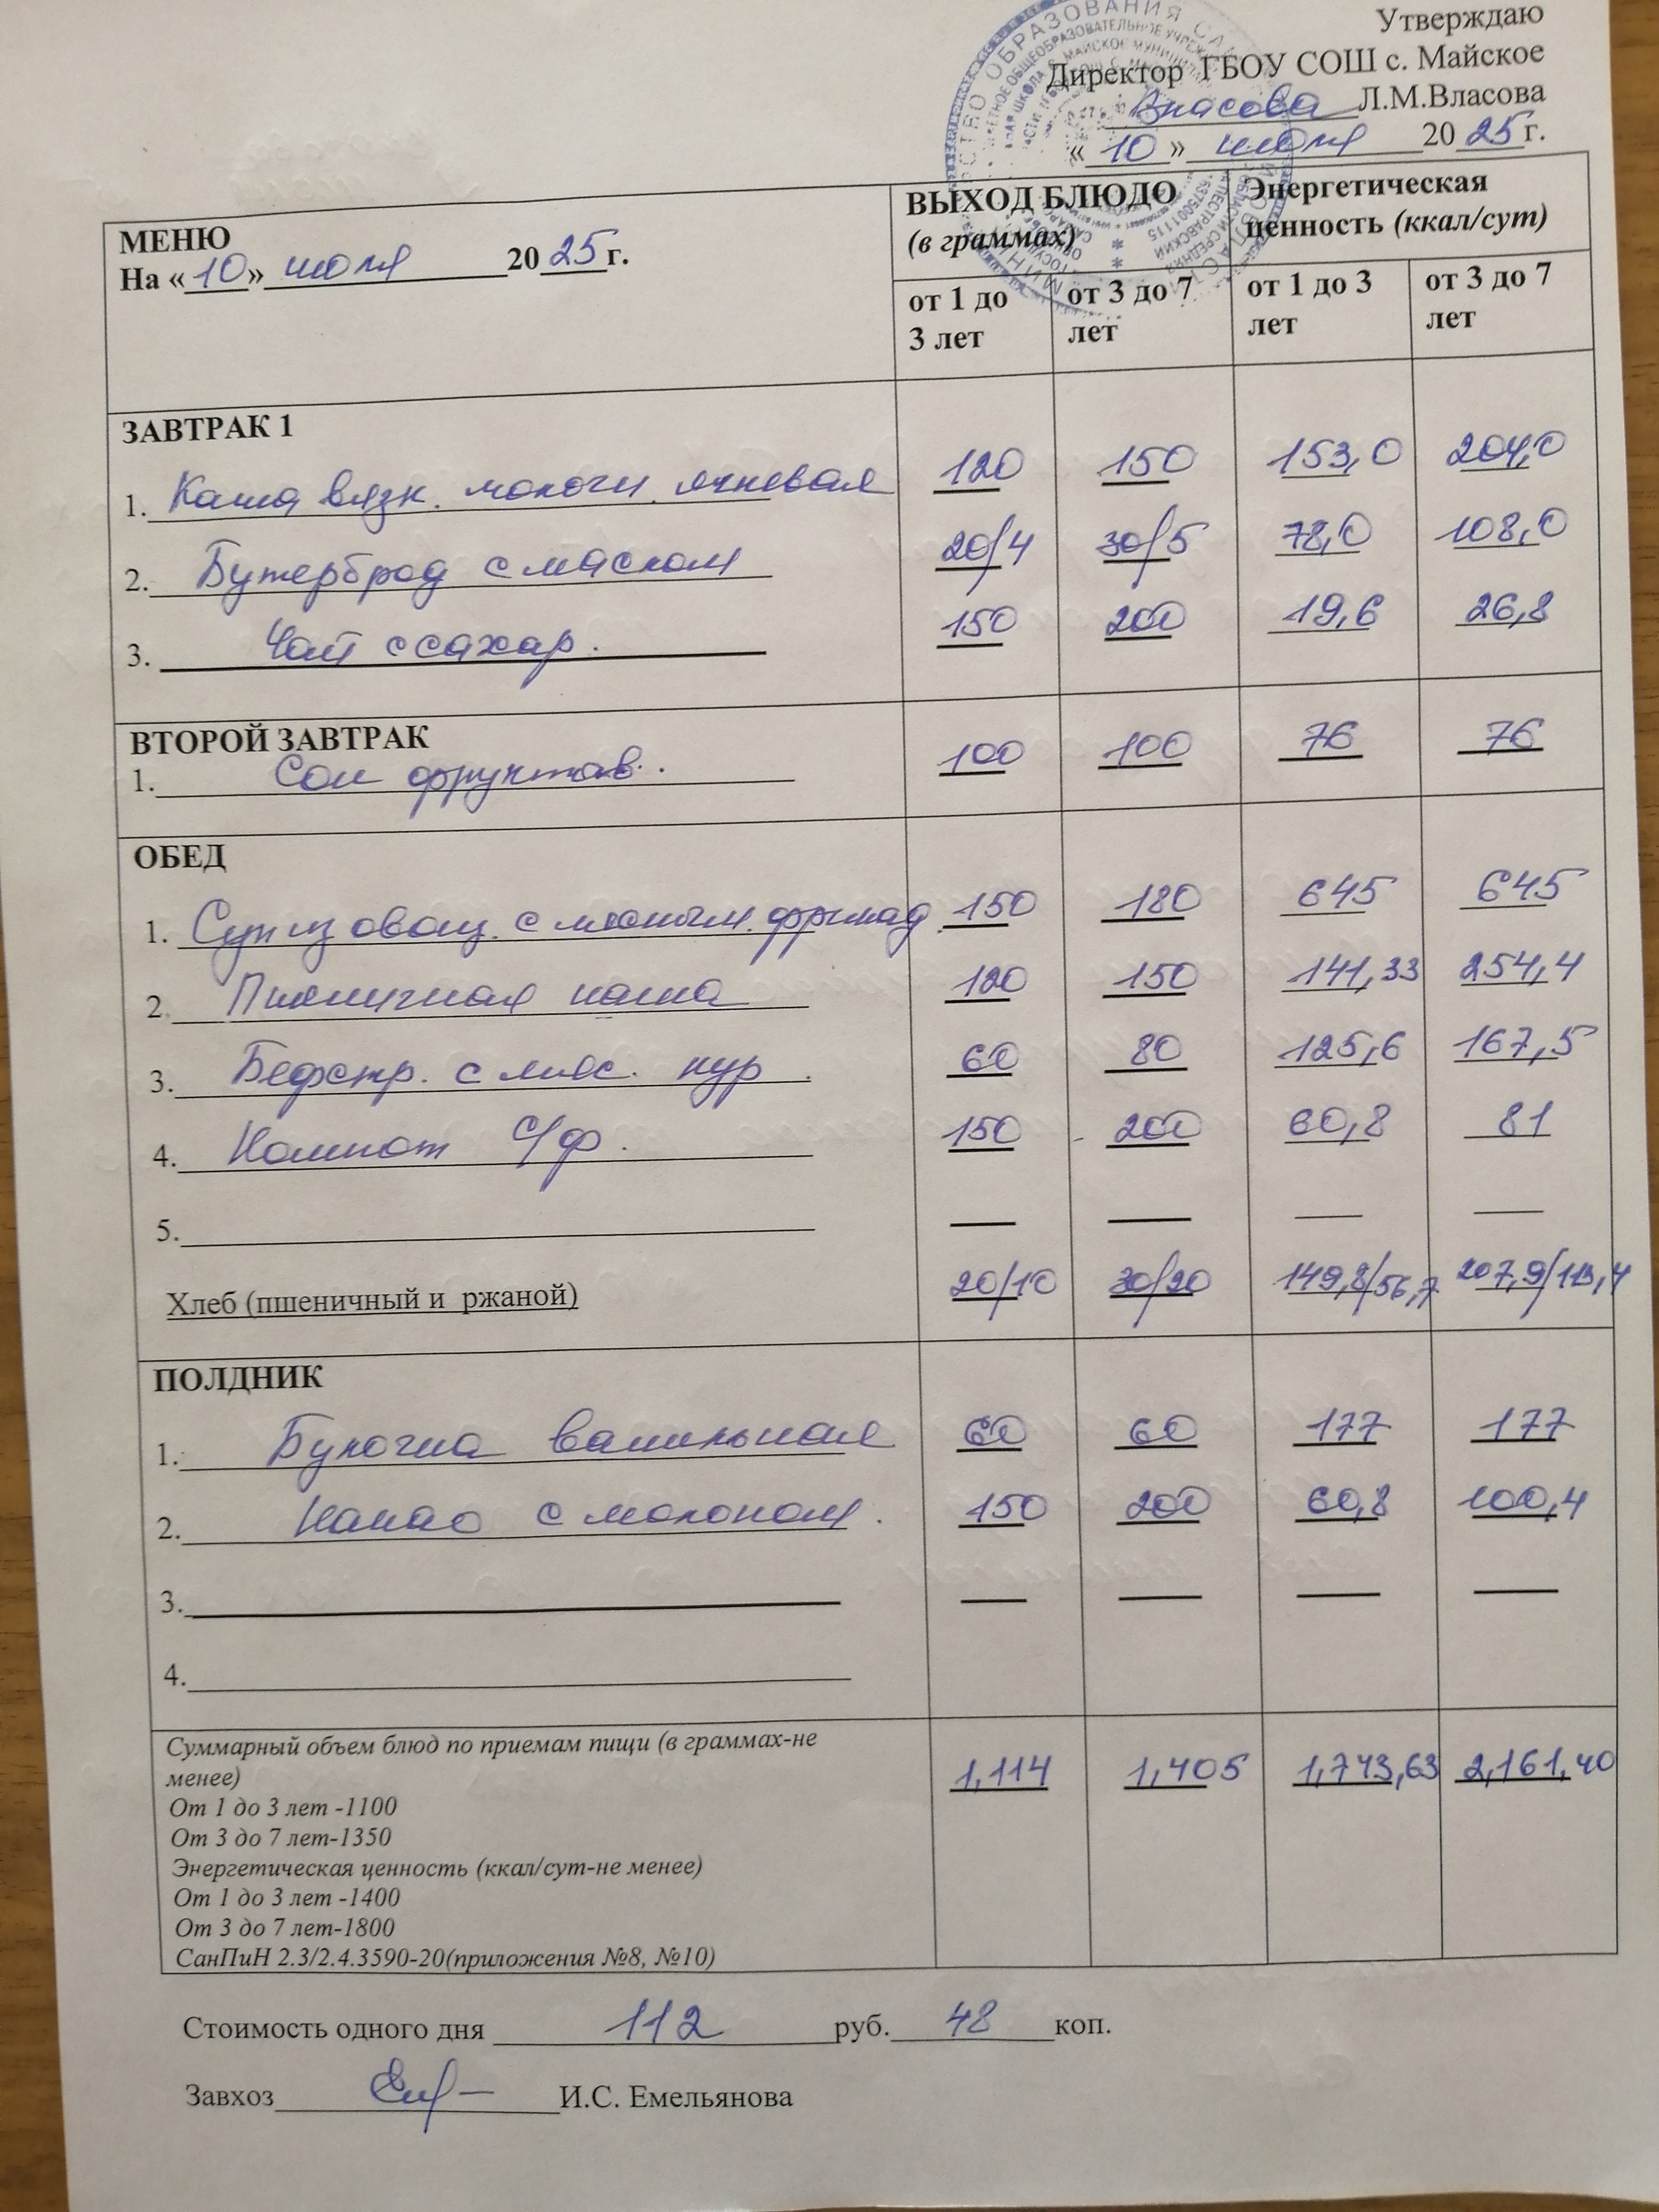 Утверждаю
Директор ГБОУ СОШ с. Майское
Власова Л.М.Власова
« 10 » июля 20 25 г.
МЕНЮ
На « 10 » июля 20 25 г.
ВЫХОД БЛЮДО
(в граммах)
Энергетическая
ценность (ккал/сут)
от 1 до
3 лет
от 3 до 7
лет
от 1 до 3
лет
от 3 до 7
лет
ЗАВТРАК 1
1. Каша вязк. молочн. ячневая 120 150 153,0 204,0
2. Бутерброд с маслом 20/4 30/5 78,0 108,0
3. Чай с сахар. 150 200 19,6 26,8
ВТОРОЙ ЗАВТРАК
1. Сок фруктов. 100 100 76 76
ОБЕД
1. Суп из овощ. с мясным. фрикад 150 180 645 645
2. Пшеничная каша 120 150 141,33 254,4
3. Бефстр. с мяс. кур. 60 80 125,6 167,5
4. Компот с/ф. 150 200 60,8 81
5.
Хлеб (пшеничный и ржаной) 20/10 30/20 149,8/56,7 207,9/113,4
ПОЛДНИК
1. Булочка ванильная 60 60 177 177
2. Какао с молоком. 150 200 60,8 100,4
3.
4.
Суммарный объем блюд по приемам пищи (в граммах-не
менее)
От 1 до 3 лет -1100
От 3 до 7 лет-1350
Энергетическая ценность (ккал/сут-не менее)
От 1 до 3 лет -1400
От 3 до 7 лет-1800
СанПиН 2.3/2.4.3590-20(приложения №8, №10)
1,114 1,405 1,743,63 2,161,40
Стоимость одного дня 112 руб. 48 коп.
Завхоз И.С. Емельянова